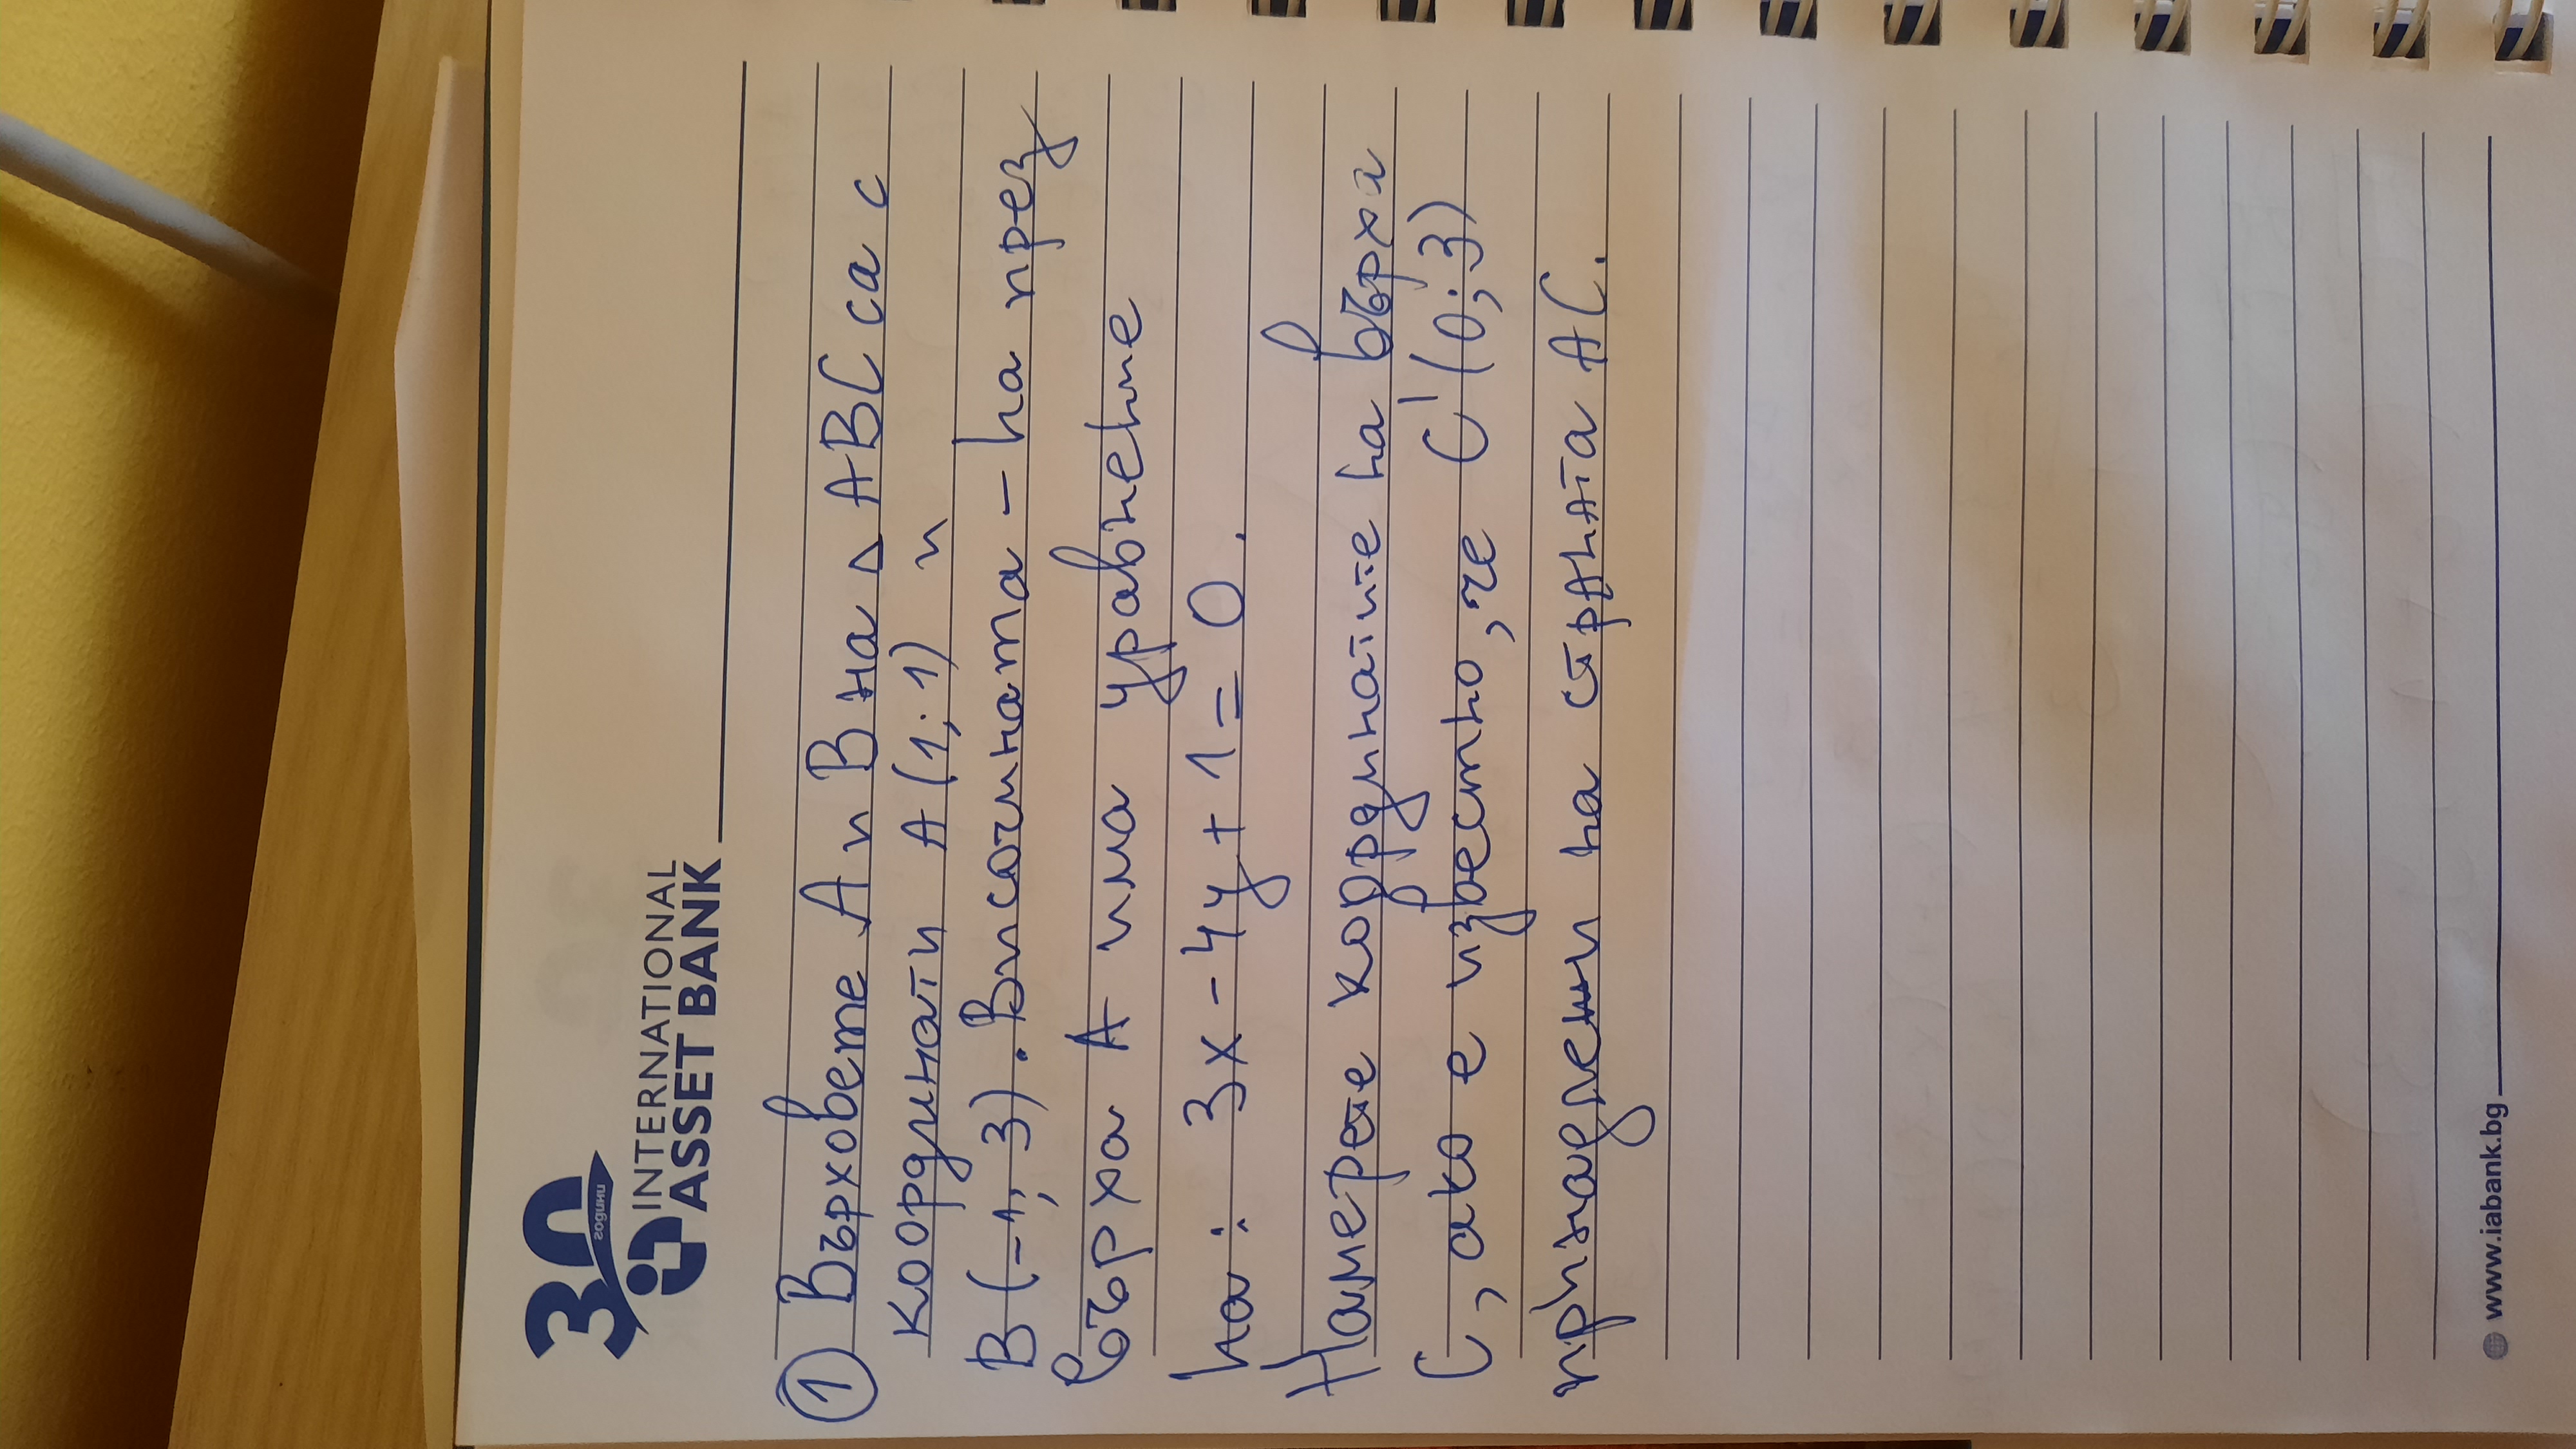 30
години
INTERNATIONAL
ASSET BANK
① Върховете A и B на △ ABC са с
координати A (1; 1) и
B (-1; 3). Височината - на през
върха A има уравнение
на: 3x - 4y + 1 = 0.
Намерете кордунатите на върха
C, ако е известно, че C' (0; 3)
принадлеши на страната AC.
www.iabank.bg